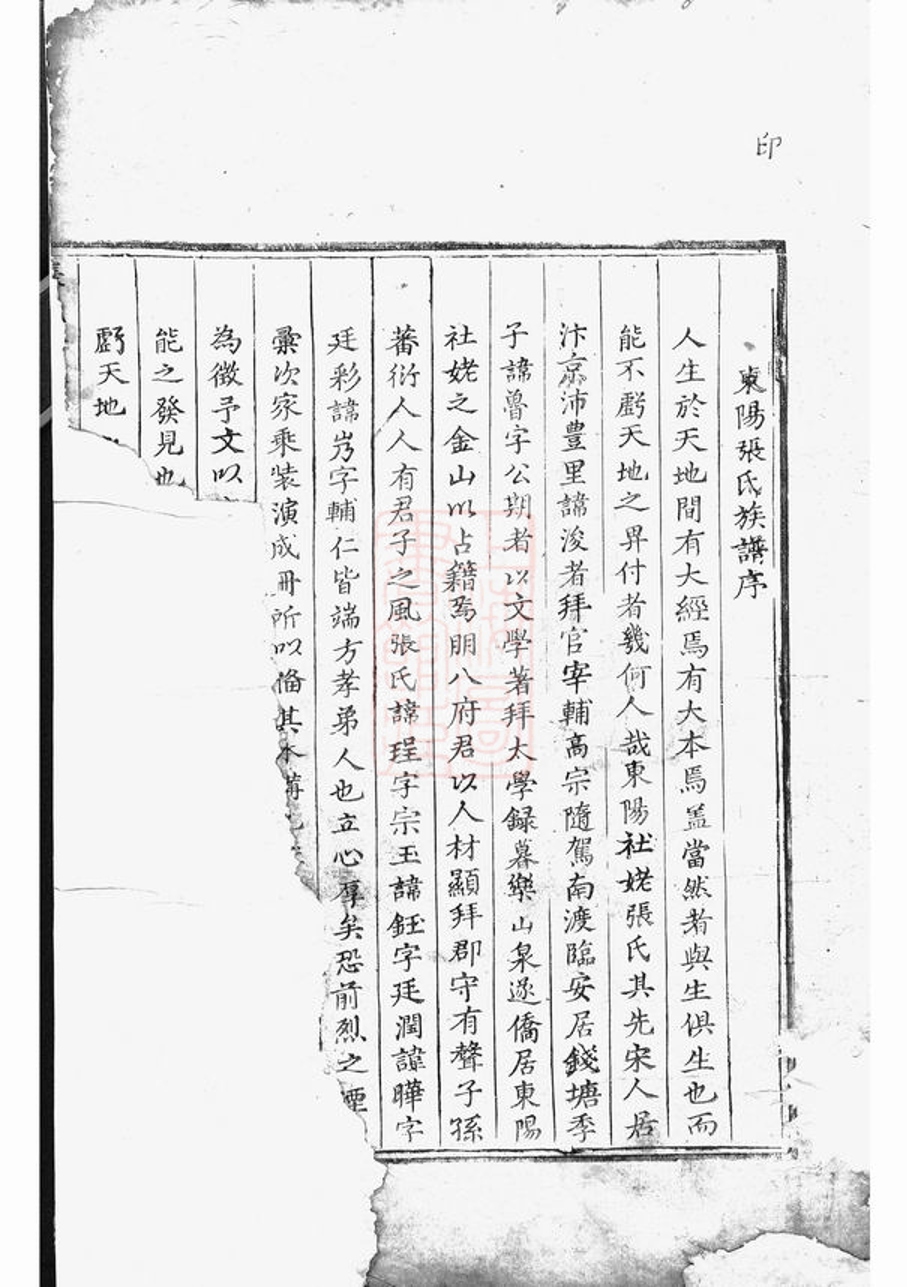 印
東陽張氏族譜序
人生於天地間有大經焉有大本焉盖當然者與生俱生也而
能不虧天地之畀付者幾何人哉東陽社姥張氏其先宋人居
汴京沛豊里諱浚者拜官宰輔高宗隨駕南渡臨安居錢塘季
子諱曾字公期者以文學著拜太學録暮樂山泉遂僑居東陽
社姥之金山以占籍焉朋八府君以人材顯拜郡守有聲子孫
蕃衍人人有君子之風張氏諱珵字宗玉諱鈺字廷潤諱曄字
廷彩諱岃字輔仁皆端方孝弟人也立心厚矣恐前烈之湮
彙次家乘装演成冊所以俻其本
為徵予文以
能之發見也
虧天地